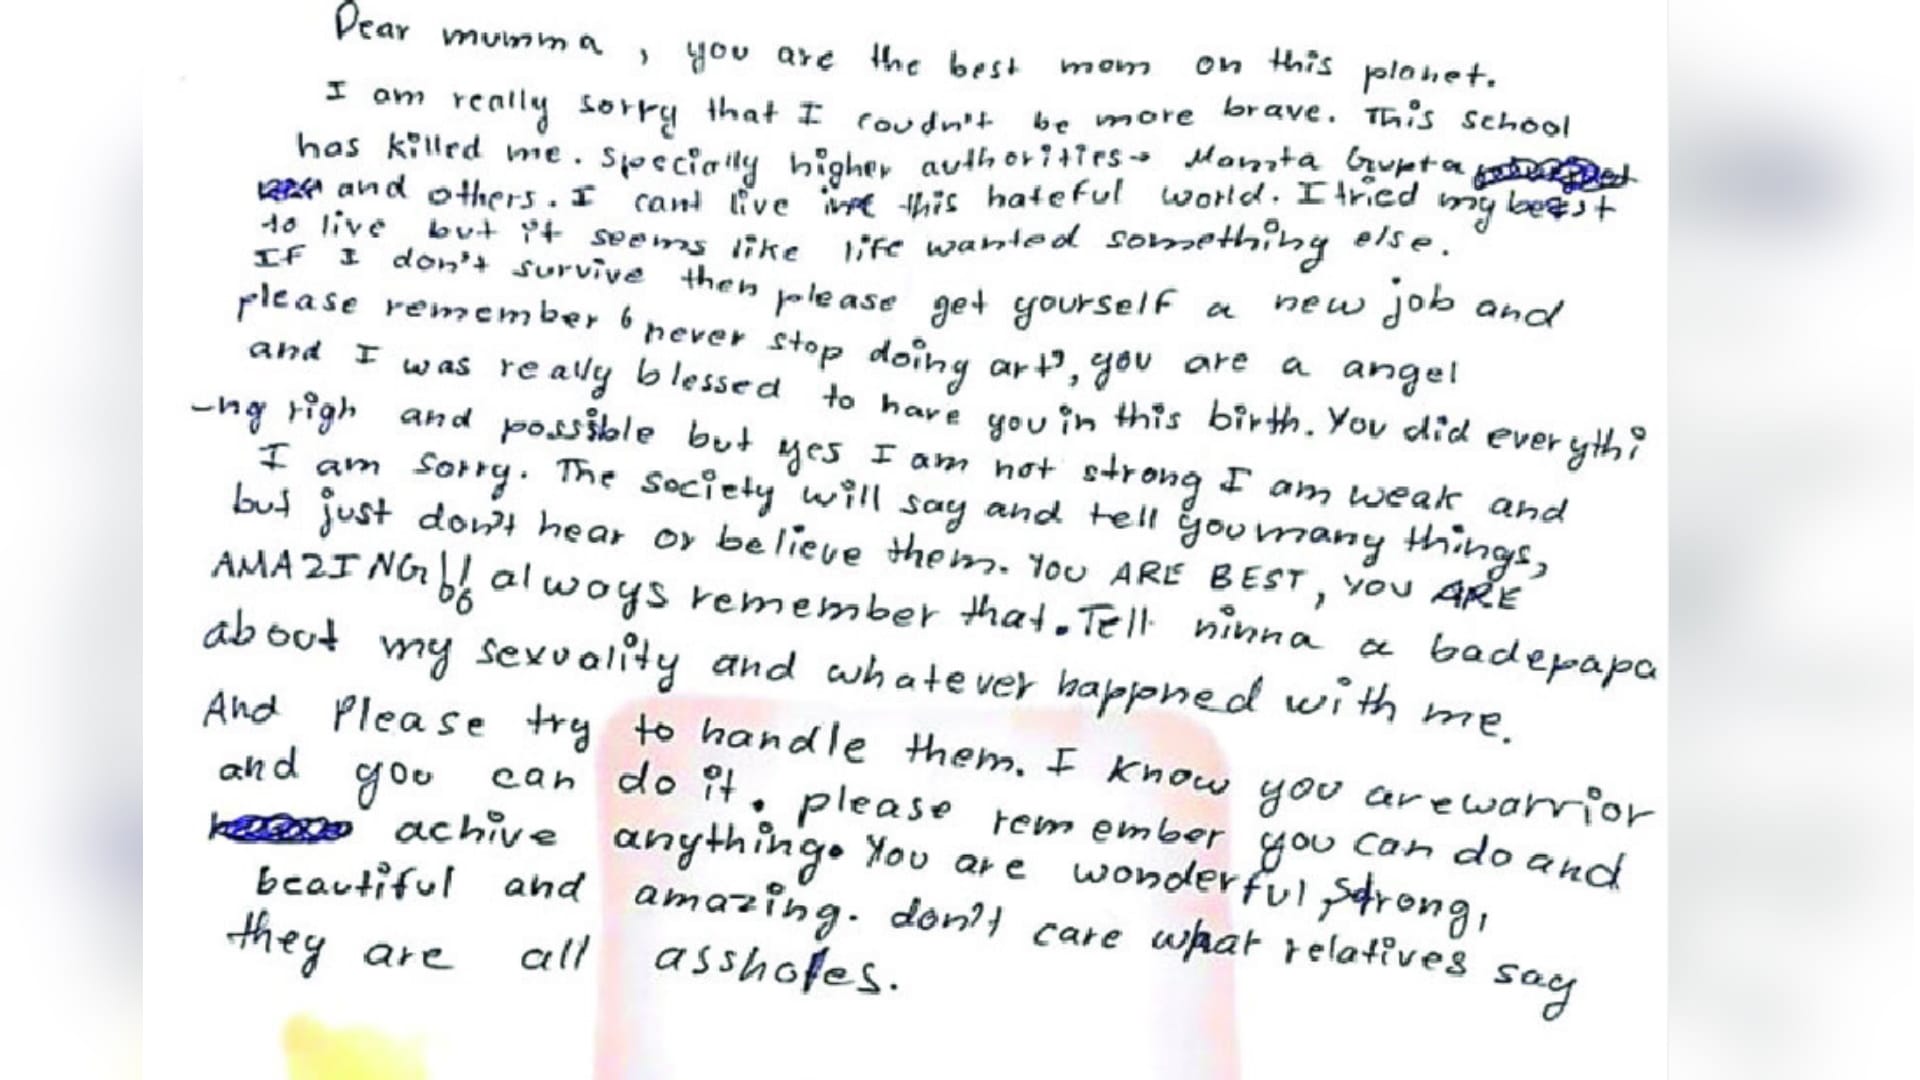 Dear mumma, you are the best mom on this planet.
I am really sorry that I coudn't be more brave. This school
has killed me. Specially higher authorities→ Mamta Gupta
and others. I cant live in this hateful world. I tried my best
to live but it seems like life wanted something else.
If I don't survive then please get yourself a new job and
please remember 6 never stop doing art", you are a angel
and I was really blessed to have you in this birth. You did everythi
-ng righ and possible but yes I am not strong I am weak and
I am sorry. The society will say and tell you many things,
but just don't hear or believe them. YOU ARE BEST, YOU ARE
AMAZING!! always remember that. Tell ninna & badepapa
about my sexuality and whatever happned with me.
And Please try to handle them. I know you are warrior
and you can do it. please remember you can do and
achive anything. You are wonderful, strong,
beautiful and amazing. don't care what relatives say
they are all assholes.